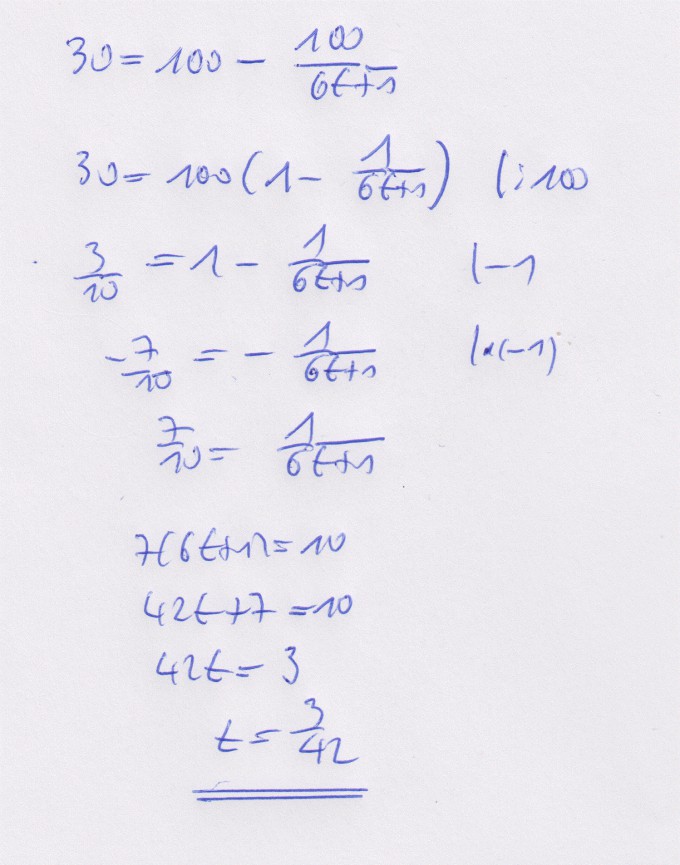 30 = 100 - 100/(6t+1)
30 = 100(1 - 1/(6t+1)) |:100
3/10 = 1 - 1/(6t+1) |-1
-7/10 = - 1/(6t+1) |*(-1)
7/10 = 1/(6t+1)
7(6t+1) = 10
42t+7 = 10
42t = 3
t = 3/42